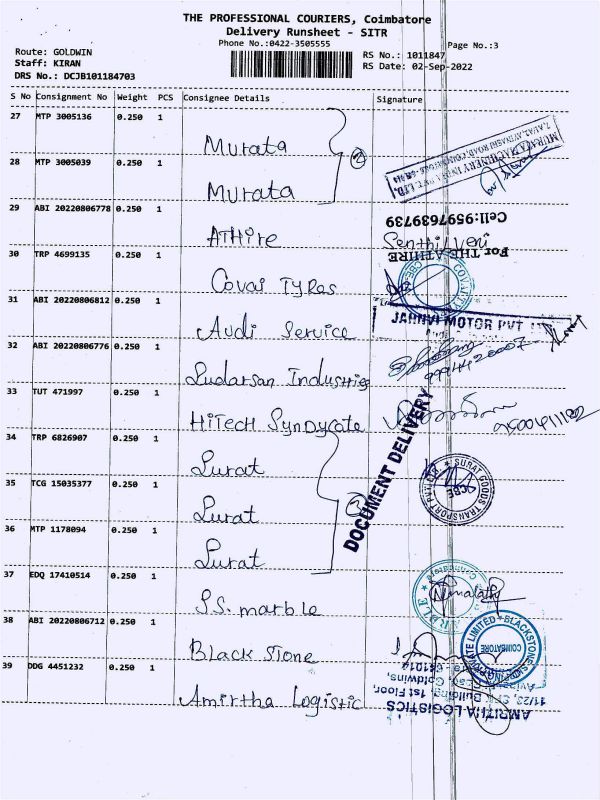 THE PROFESSIONAL COURIERS, Coimbatore
Delivery Runsheet - SITR
Phone No.:0422-3505555
Page No.:3
Route: GOLDWIN
RS No.: 1011847
Staff: KIRAN
RS Date: 02-Sep-2022
DRS No.: DCJB101184703
S No Consignment No Weight PCS Consignee Details Signature
27 MTP 3005136 0.250 1 Murata
28 MTP 3005039 0.250 1 Murata
2
MURATA MACHINERY INDIA PVT. LTD.
29 ABI 20220806778 0.250 1 AtHire
Cell:95976 39739
Senthil Veni
For THE ATHIRE
30 TRP 4699135 0.250 1 Covai TyRes
31 ABI 20220806812 0.250 1 Audi Service
JAHNVI MOTOR PVT
32 ABI 20220806776 0.250 1 Sudarsan Industries
33 TUT 471997 0.250 1 HiTecH Syndycate
DOCUMENT DELIVERY
34 TRP 6826907 0.250 1 Surat
35 TCG 15035377 0.250 1 Surat
36 MTP 1178094 0.250 1 Surat
3
SURAT GOODS TRANSPORT PVT. LTD.
CBE
37 EDQ 17410514 0.250 1 S.S. marble
38 ABI 20220806712 0.250 1 Black Stone
COIMBATORE
39 DDG 4451232 0.250 1 Amirtha Logistic
AMRITHA LOGISTICS
11/23, SFK Building, 1st Floor,